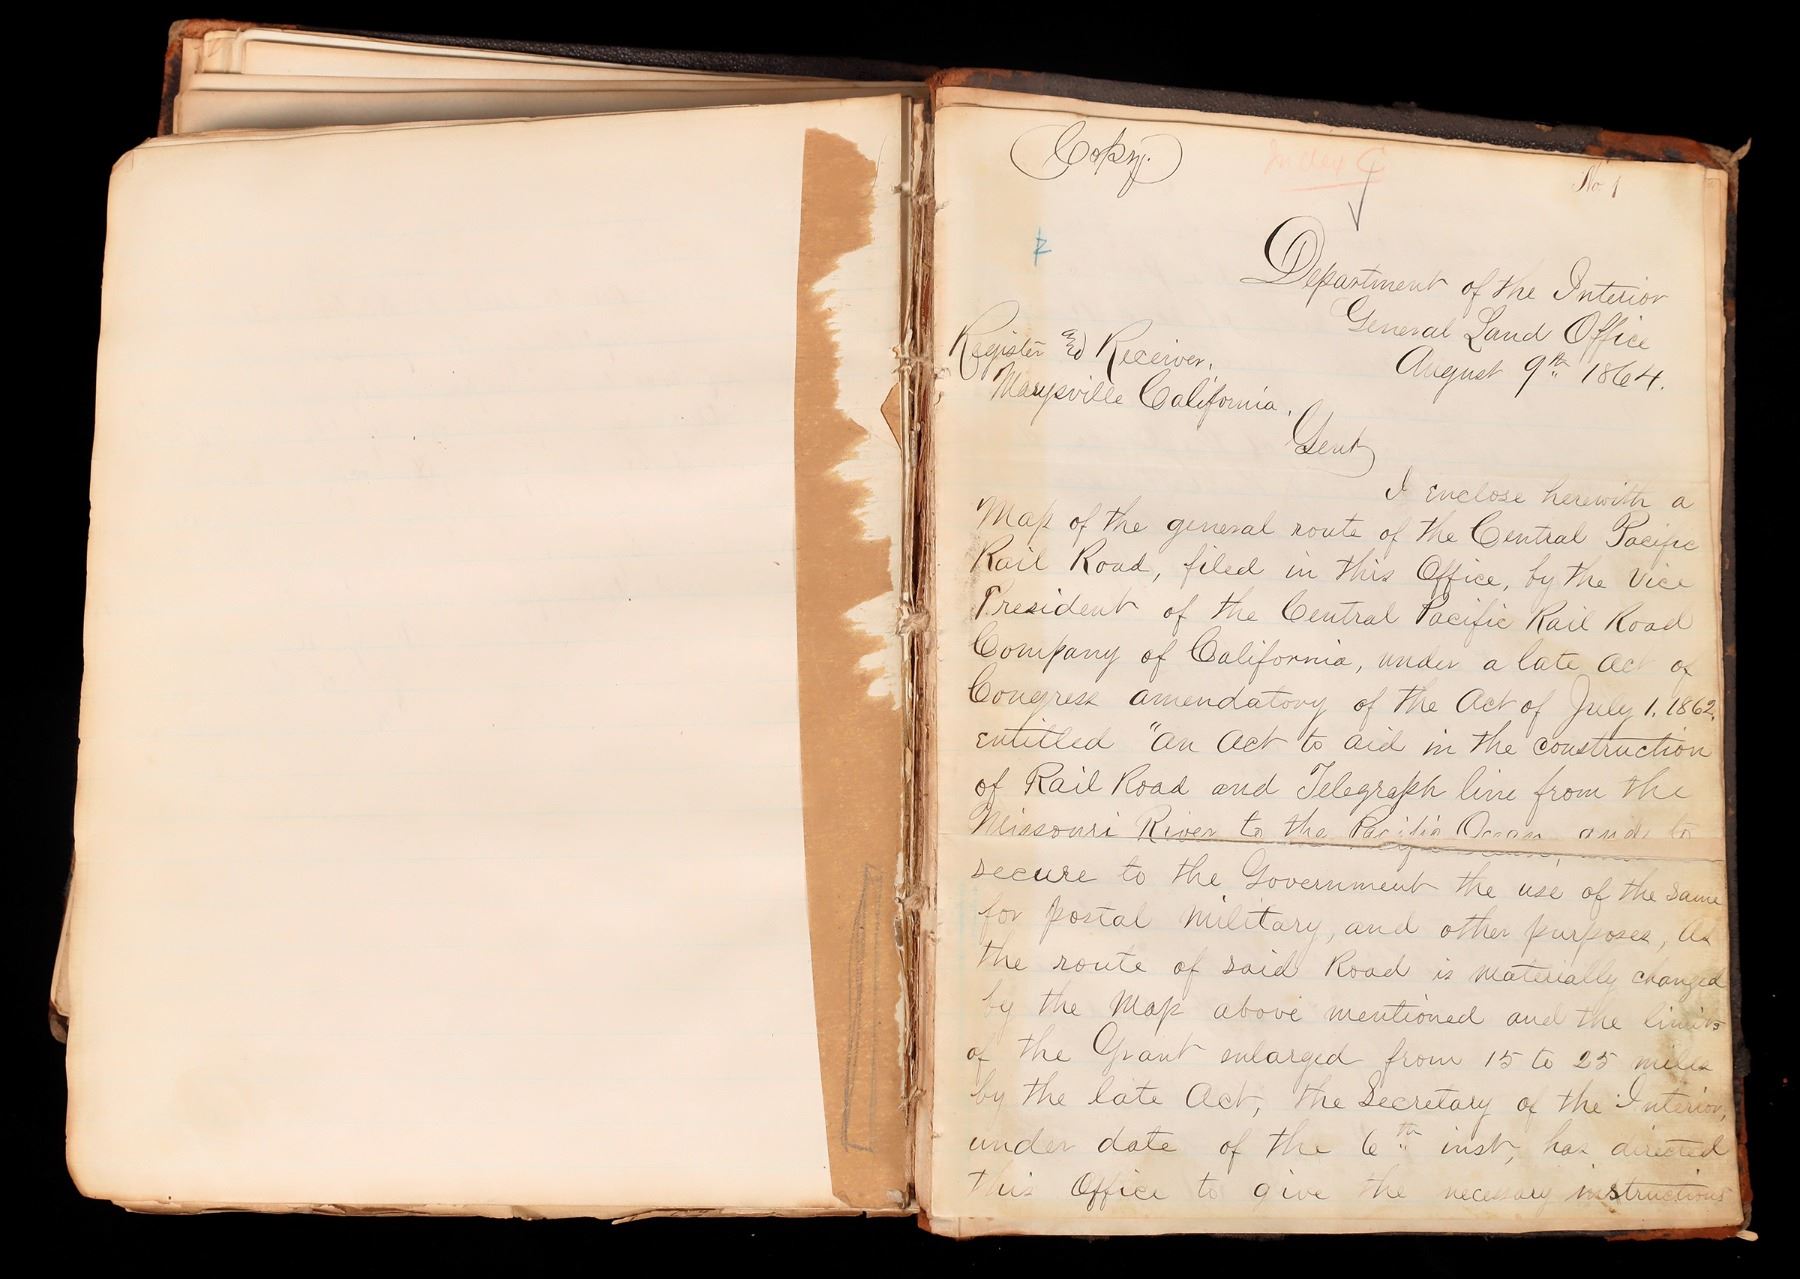 Copy.
Index C
No 1
Department of the Interior
General Land Office
August 9th 1864.
Register and Receiver,
Marysville California.
Gent
I enclose herewith a
Map of the general route of the Central Pacific
Rail Road, filed in this Office, by the Vice
President of the Central Pacific Rail Road
Company of California, under a late Act of
Congress amendatory of the Act of July 1. 1862,
entitled "An Act to aid in the construction
of Rail Road and Telegraph line from the
Missouri River to the Pacific Ocean, and to
secure to the Government the use of the same
for postal Military, and other purposes, As
the route of said Road is materially changed
by the Map above mentioned and the limits
of the Grant enlarged from 15 to 25 miles
by the late Act, the Secretary of the Interior,
under date of the 6th inst, has directed
this Office to give the necessary instructions